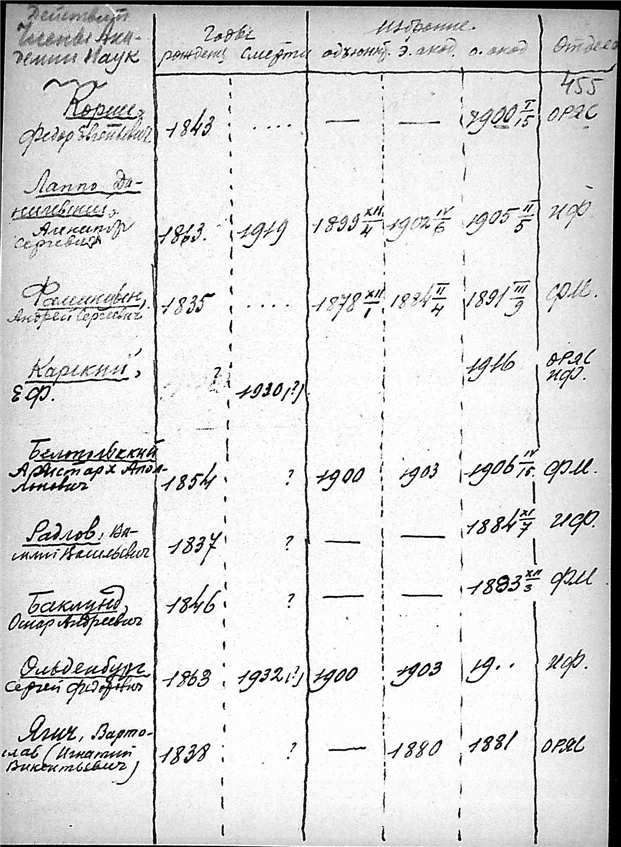 Действит.
Члены Ака-
демии Наук
Годы
рождения Смерти
Избрание.
адъюнкт. э. акад. о. акад
Отдел
455
Корш,
Федор Евгеньевич 1843 .... — — 1900 I/15 ОРЯС
Лаппо Да-
нилевский,
Александр
Сергеевич 1863. 1919 1899 XII/4 1902 IV/6 1905 II/5 ИФ
Фаминцын,
Андрей Сергеевич, 1835 .... 1878 XII/1 1884 II/4 1891 III/9 ФМ.
Карский,
Е Ф. ? 1930(?) 1916 ОРЯС
ИФ.
Белопольский
Аристарх Апол-
лонович 1854 ? 1900 1903 1906 IV/15 ФМ.
Радлов, Ва-
силий Васильевич 1837 ? — — 1884 XI/7 ИФ.
Баклунд,
Оскар Андреевич 1846 ? — — 1883 XII/3 ФМ
Ольденбург
Сергей Федорович 1863 1932(?) 1900 1903 19.. ИФ.
Ягич, Ватро-
слав (Игнатий
Викентьевич) 1838 ? — 1880 1881 ОРЯС